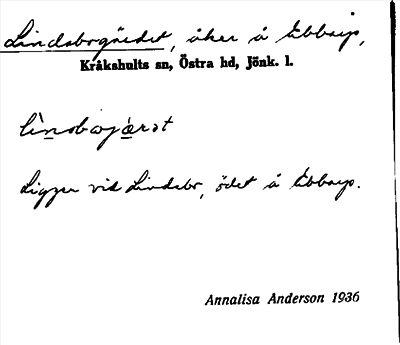 Lindsbogärdet, åker å Ebbarp,
Kråkshults sn, Östra hd, Jönk. l.
lìnsboj̀ærət
Ligger vid Lindsbo, ödet å Ebbarp.
Annalisa Anderson 1936